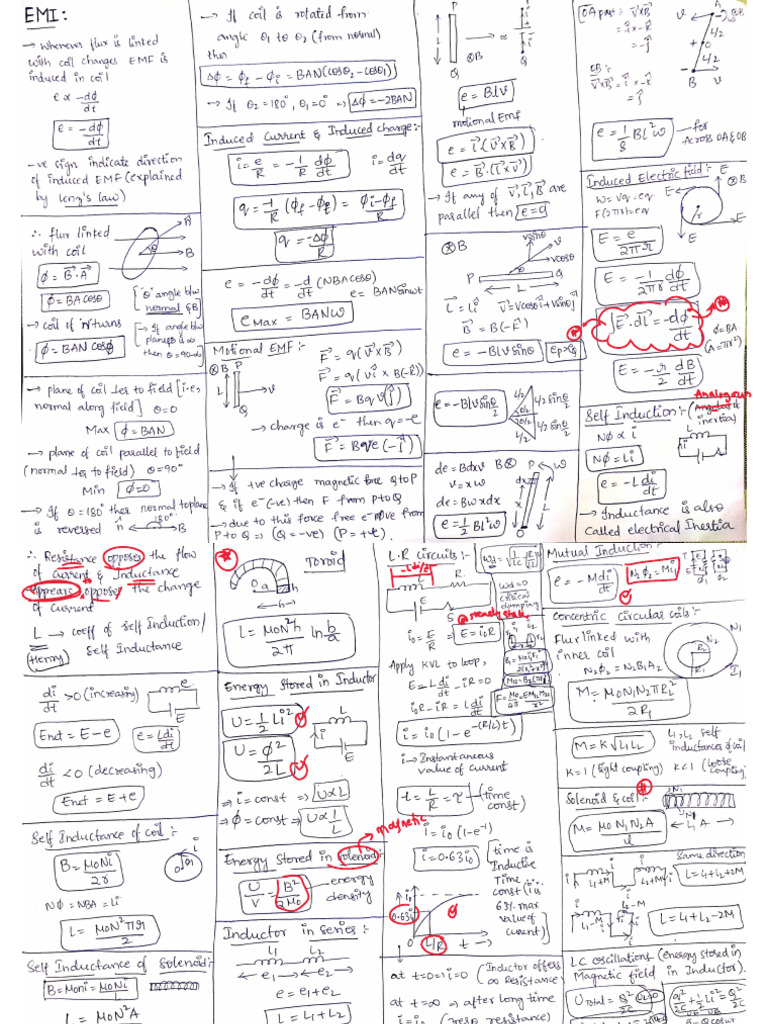 EMI :
→ Whenever flux is linked
with coil changes EMF is
induced in coil
e ∝ -dϕ/dt
e = -dϕ/dt
-ve sign indicate direction
of induced EMF (explained
by lenz's law)
∴ flux linked
with coil
ϕ = B⃗·A⃗
ϕ = BA cosθ
A
B
θ
['θ' angle b/w
normal & B]
→ coil of 'n' turns
ϕ = BAN cosϕ
[→ If angle b/w
then θ = 90-α]
→ plane of coil ⊥er to field [i.e,
normal along field] θ=0
Max ϕ = BAN
→ plane of coil parallel to field
(normal ⊥er to field) θ=90°
Min ϕ=0
→ If θ=180° then normal to plane
is reversed n̂ 180° B
→ If coil is rotated from
angle θ1 to θ2 (from normal)
then
Δϕ = ϕf - ϕi = BAN(cosθ2 - cosθ1)
→ If θ2 = 180°, θ1 = 0° ⇒ Δϕ = -2BAN
Induced Current & Induced charge:-
i = e/R = -1/R dϕ/dt
i = dq/dt
q = -1/R (ϕf - ϕi) = ϕi - ϕf/R
q = -Δϕ/R
e = -dϕ/dt = -d/dt (NBA cosθ)
e = BAN sinωt
eMax = BANω
Motional EMF:-
⊗B P
L
Q
→ v
F⃗ = q(v⃗ × B⃗)
F⃗ = q(vi × B(-k̂))
F⃗ = Bqv(ĵ)
→ charge is e⁻ then q = -e
F⃗ = Bqve(-ĵ)
→ If +ve charge magnetic force Q to P
& if e⁻(-ve) then F from P to Q
→ due to this force free e⁻ move from
P to Q ⇒ (Q = -ve) (P = +ve)
P
Q
⊗B
e = Blv
motional Emf
e = l⃗·(v⃗×B⃗)
e = B⃗·(l⃗×v⃗)
→ If any of v⃗, l⃗, B⃗ are
parallel then e=0
⊗B
v sinθ
v
v cosθ
P
Q
L
L⃗ = Li
v⃗ = v cosθ i + v sinθ j
B⃗ = B(-k̂)
e = -Blv sinθ
eP > eQ
e = -Blv sinθ/2
L/2
L/2 sinθ/2
de = Bdxv
B⊗
P
ω
v = xω
dx
de = Bωxdx
e = 1/2 BL²ω
Q
OA part : v⃗×B⃗
= i × -k
= -j
OB:
v⃗×B⃗ = i × -k
= j
v
A
⊗B
L/2
O
L/2
B
v
e = 1/8 Bl²ω
for
ACROSS OA & OB
Induced Electric field:-
E
⊗B
W = Vq = eq
F(2πr) = eq
r
E = e/2πr
E = -1/2πr dϕ/dt
∫E⃗·dl⃗ = -dϕ/dt
ϕ = BA
(A = πr²)
E = -r/2 dB/dt
Analogous
Self Induction:- (
inertia)
Nϕ ∝ i
Nϕ = Li
e = -L di/dt
L
i
→ Inductance is also
called electrical Inertia
∴ Resistance opposes the flow
of current & Inductance
appears oppose the change
of current
L → coeff of self Induction/
self Inductance
(Henry)
di/dt > 0 (increasing)
e
E
Enet = E - e
e = Ldi/dt
di/dt < 0 (decreasing)
Enet = E + e
Self Inductance of coil:-
B = μ0Ni/2r
Nϕ = NBA = Li
L = μ0N²πr/2
Self Inductance of Solenoid:-
B = μ0ni = μ0Ni/L
L = μ0N²A
Toroid
a
b
h
L = μ0N²h/2π ln b/a
Energy stored in Inductor
U = 1/2 Li0²
U = ϕ²/2L
L
i
E
⇒ i = const ⇒ U ∝ L
⇒ ϕ = const ⇒ U ∝ 1/L
magnetic
Energy stored in solenoid:-
U/V = B²/2μ0
energy
density
Inductor in series:-
L1 L2
← e1 → ← e2 →
e = e1 + e2
L = L1 + L2
L-R Circuits:-
-Ldi/dt
L R
E
S
ωd = 0
critical
damping
@ steady state
i0 = E/R
E = i0R
Apply KVL to loop,
E - Ldi/dt - iR = 0
i0R - iR = Ldi/dt
i = i0(1 - e^-(R/L)t)
i → Instantaneous
value of current
t = L/R = τ (time
const)
i = i0(1 - e⁻¹)
i = 0.63i0
i
i0
0.63i
L/R
t →
[time is
Inductive
Time
const (i is
63% max
value of
current)]
at t=0 ⇒ i=0 (Inductor offers
∞ Resistance)
at t=∞ ⇒ after long time
i = i0 (zero resistance)
Mutual Induction:-
e = -Mdi/dt
N2ϕ2 = Mi1
Concentric Circular coils:-
Flux linked with
inner coil
N2ϕ2 = N2B1A2
N1
N2
R1
I1
M = μ0N1N2πR2²/2R1
M = K√L1L2
L1, L2 self
inductances of coil
K=1 (tight coupling) K<1 (loose
coupling)
Solenoid & coil:-
N1
M = μ0N1N2A/l
← l, A →
same direction
L1+M
L2+M
L = L1+L2+2M
L1-M
L2-M
L = L1+L2-2M
LC oscillations (energy stored in
Magnetic field in Inductor).